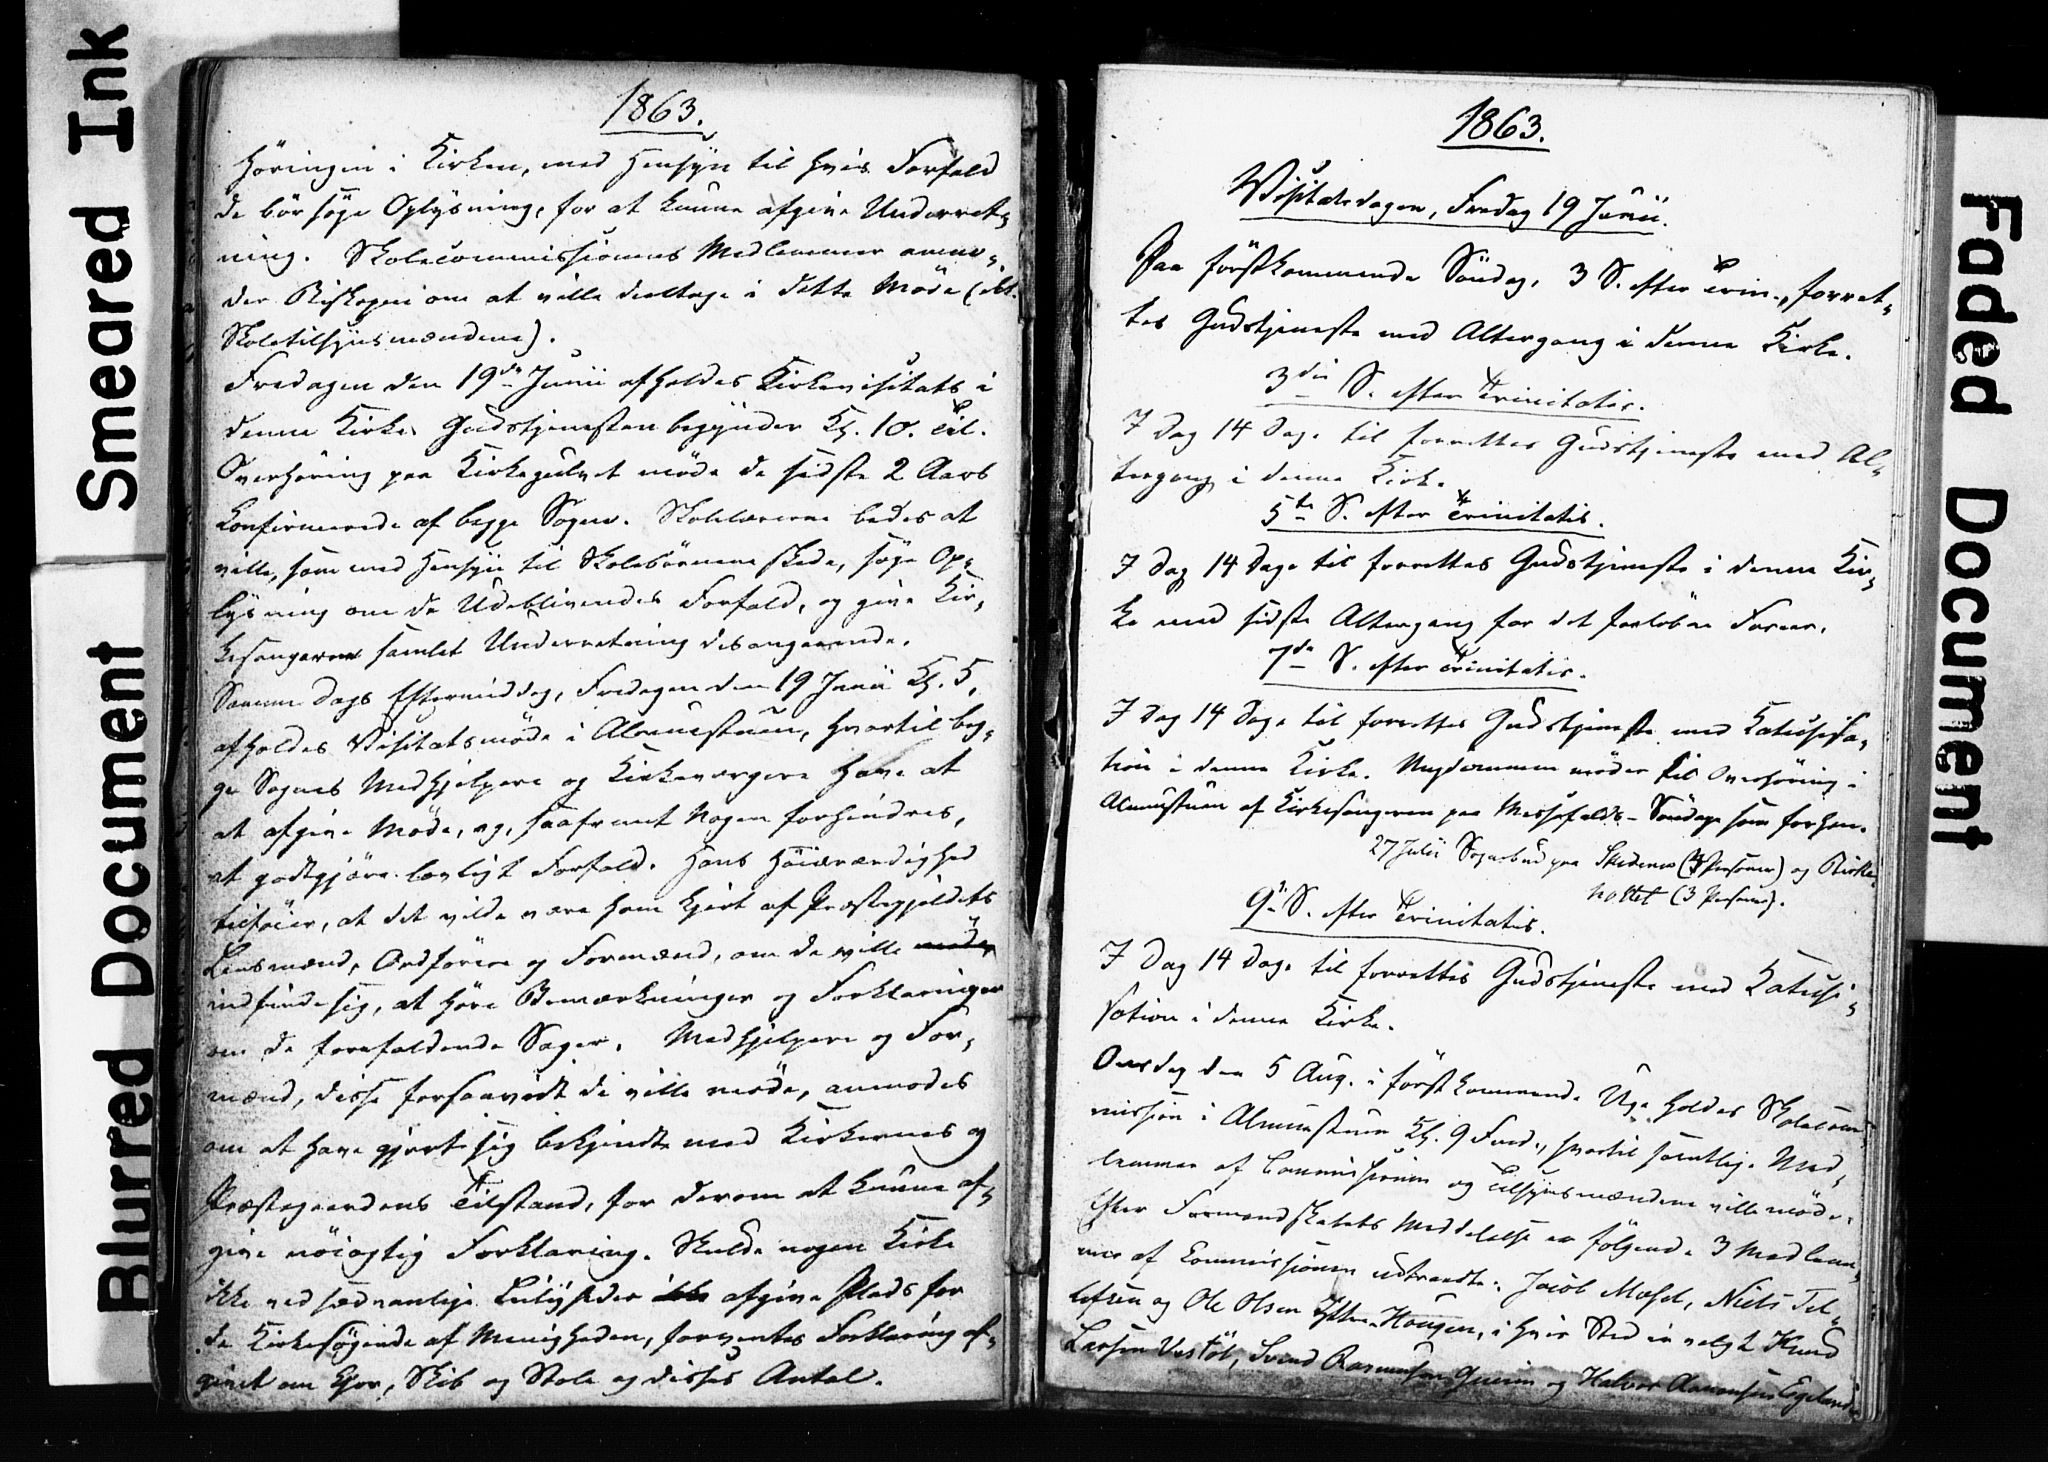 Smeared Ink
Blurred Document
Faded Document
1863.
Höringen i Kirken, med Hensyn til hvis Forfald
de bör söge Oplysning, for at kunne afgive Underret-
ning. Skolecommissionens Medlemmer anmo-
der Biskopen om at ville deeltage i dette Möde (
Skoletilsynsmændene).
Fredagen den 19de Junii afholdes Kirkevisitats i
denne Kirke. Gudstjenesten begynder Kl. 10. Til
Overhöring paa Kirkegulvet möde de sidste 2 Aars
Confirmerede af begge Sogne. Skolelærerne bedes at
ville, som med Hensyn til Skolebörnene skede, söge Op-
lysning om de Udeblivendes Forfald, og give Kir-
kesangerne samlet Underretning desangaaende.
Samme Dags Eftermiddag, Fredagen den 19 Junii Kl. 5,
afholdes Visitatsmöde i Almuestuen, hvortil beg-
ge Sognes Medhjelpere og Kirkeværgere have at
at afgive Möde, og, saafremt Nogen forhindres,
at godtgjöre lovligt Forfald. Hans Höiærværdighed
tilföier, at det vilde være ham kjært af Præstegjeldets
Lensmænd, Ordförere og Formænd, om de ville möde
indfinde sig, at höre Bemærkninger og Forklaringer
om de forefaldende Sager. Medhjelpere og For-
mænd, disse forsaavidt de ville möde, anmodes
om at have gjort sig bekjendte med Kirkernes og
Præstegaardens Tilstand, for derom at kunne af-
give nöiagtig Forklaring. Skulde nogen Kirke
ikke ved sædvanlige Leiligheder afgive Plads for
de Kirkesögende af Menigheden, forventes Forklaring af-
givet om Chor, Skib og Stole og disses Antal.
1863.
Visitatsdagen, Fredag 19 Junii.
Paa förstkommende Söndag, 3 S. efter Trin., forret-
tes Gudstjeneste med Altergang i denne Kirke.
3die S. efter Trinitatis.
I Dag 14 Dage til forrettes Gudstjeneste med Al-
tergang i denne Kirke
5te S. efter Trinitatis.
I Dag 14 Dage til forrettes Gudstjeneste i denne Kir-
ke med sidste Altergang for det forlöbne Foraar.
7de S. efter Trinitatis.
I Dag 14 Dage til forrettes Gudstjeneste med Katechisa-
tion i denne Kirke. Ungdommen möder til Overhöring i
Almuestuen af Kirkesangeren paa Messefalds-Söndage som forhen.
27 Julii Sognebud paa (4 Personer) og Birke-
(3 Personer).
9de S. efter Trinitatis.
I Dag 14 Dage til forrettes Gudstjeneste med Katechi-
sation i denne Kirke.
Onsdag den 5 Aug. i förstkommende Uge holdes Skolecom-
mission i Almuestuen Kl. 9 Form., hvortil samtlige Med-
lemmer af Commissionen og Tilsynsmændene ville möde.
Efter Formandskabets Meddelelse er fölgende 3 Medlem-
mer af Commissionen udtraadte: Jacob Mosel, Niels Tel-
lefsen og Ole Olsen Ytre-Hougen, i hvis Sted er valgt Knud
Larsen Vestöl, Svend Rasmussen og Halvor Aanonsen Egeland